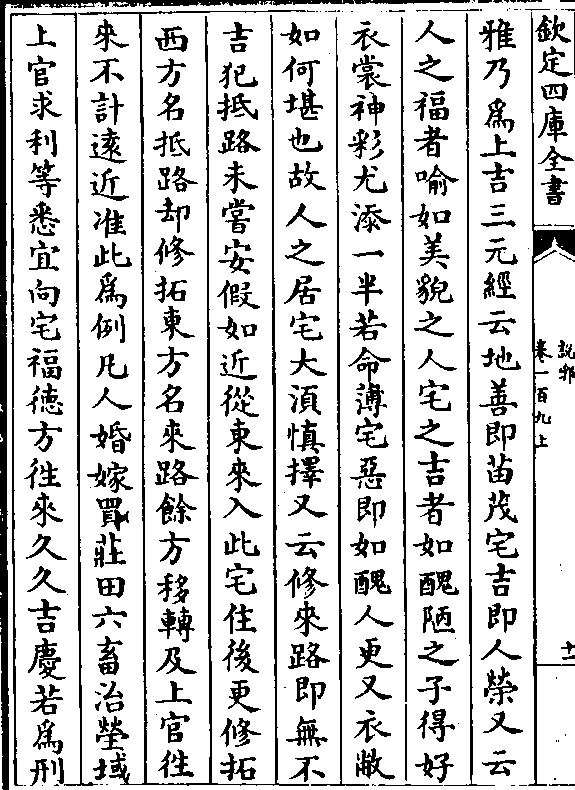 欽定四庫全書
說郛
卷一百九上
十一
雅乃為上吉三元經云地善即苗茂宅吉即人榮又云
人之福者喻如美貌之人宅之吉者如醜陋之子得好
衣裳神彩尤添一半若命薄宅惡即如醜人更又衣敝
如何堪也故人之居宅大湏慎擇又云修來路即無不
吉犯抵路未嘗安假如近從東來入此宅住後更修拓
西方名抵路却修拓東方名來路餘方移轉及上官徃
來不計逺近准此為例凡人婚嫁買莊田六畜治塋域
上官求利等悉宜向宅福德方徃來久久吉慶若為刑